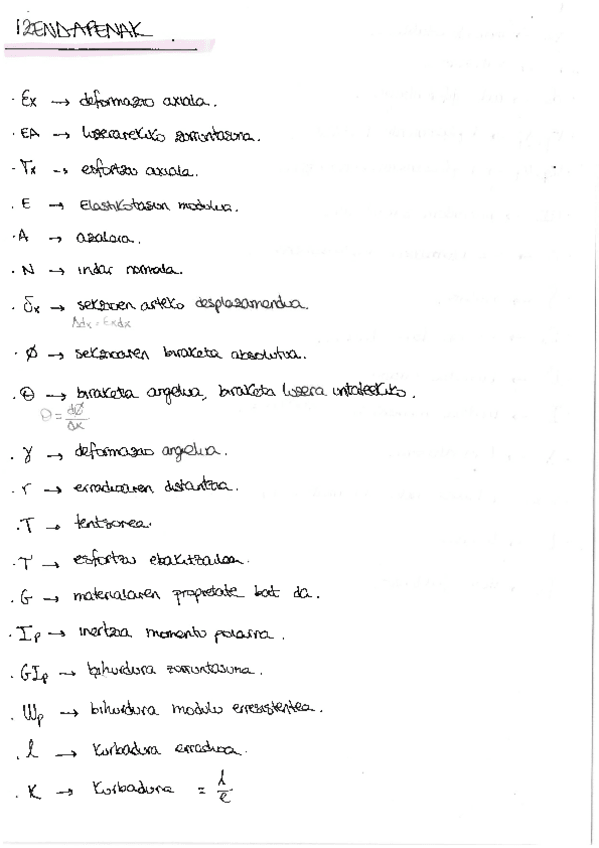 IZENDAPENAK
· Ex → deformazio axiala.
· EA → luzerarekiko zurruntasuna.
· Tx → esfortzu axiala.
· E → Elastikotasun modulua.
· A → azalera.
· N → indar normala.
· δx → sekzioen arteko desplazamendua.
Δdx = Exdx
· Ø → sekzioaren biraketa absolutua.
· θ → biraketa angelua, biraketa luzera unitateekiko.
θ = dØ/Δx
· γ → deformazio angelua.
· r → erradioaren distantzia.
· T → tentsorea.
· T → esfortzu ebakitzailea.
· G → materialaren propietate bat da.
· Ip → inertzia momentu polarra.
· GIp → bihurdura zurruntasuna.
· Wp → bihurdura modulu erresistentea.
· l → Kurbadura erradioa.
· K → Kurbadura = 1/e